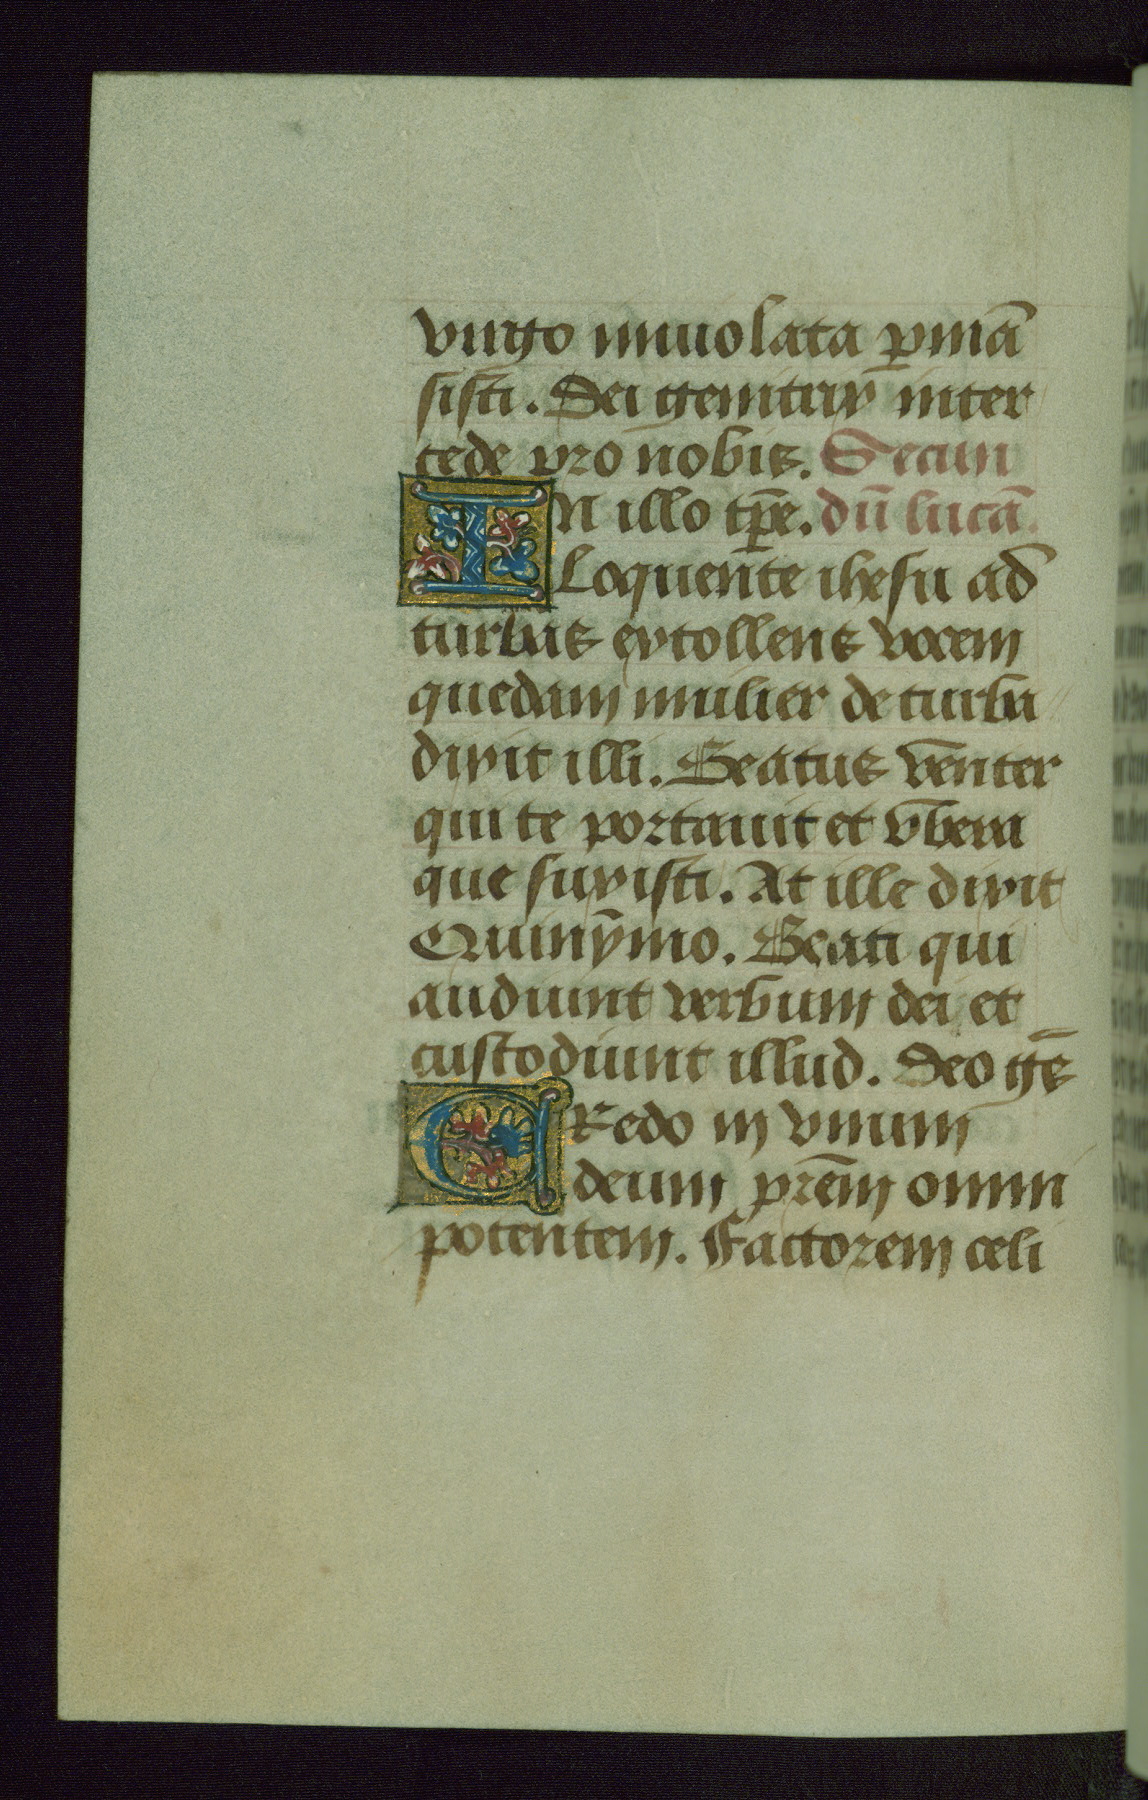 virgo inuiolata ꝑmã
sisti. Dei genitrix inter
cede pro nobis. Secun
IN illo tꝑe. dũ lucã.
Loquente ihesu ad
turbas extollens vocem
quedam mulier de turba
dixit illi. Beatus venter
qui te portauit et vbera
que suxisti. At ille dixit
Quinymo. Beati qui
audiunt verbum dei et
custodiunt illud. Deo gr̃
CRedo in vnum
deum pr̃em omni
potentem. Factorem celi